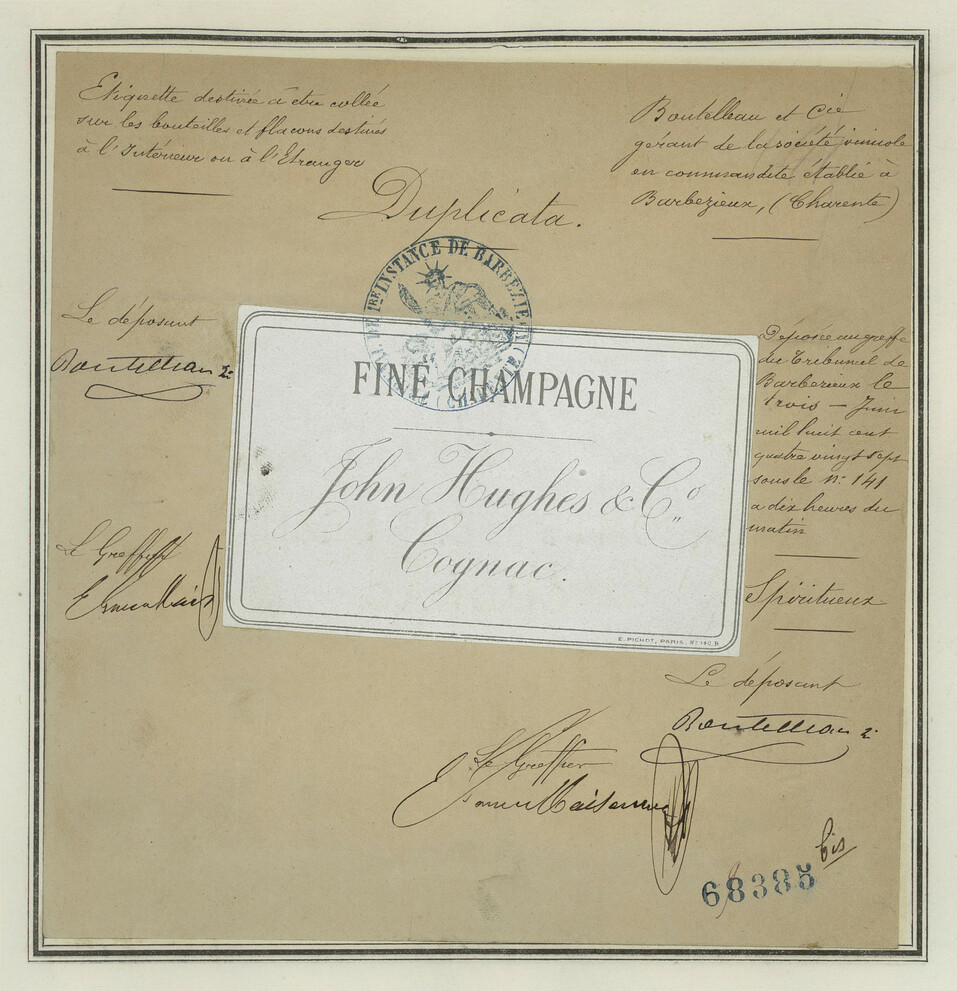 Etiquette destinée à être collée
sur les bouteilles et flacons destinés
à l'Intérieur ou à l'Etranger
Boutelleau et Cie
gérant de la société vinicole
en commandite établie à
Barbezieux, (Charente)
Duplicata.
Le déposant
Boutelleau
DE 1RE INSTANCE DE BARBEZIEUX
(CHARENTE)
FINE CHAMPAGNE
John Hughes & Co
Cognac.
E. PICHOT, PARIS.
Déposée au greffe
du Tribunal de
Barbezieux le
trois — Juin
mil huit cent
quatre vingt sept
sous le No: 141
a dix heures du
matin
Le Greffier
Spiritueux
Le déposant
Boutelleau
Le Greffier
68385 bis